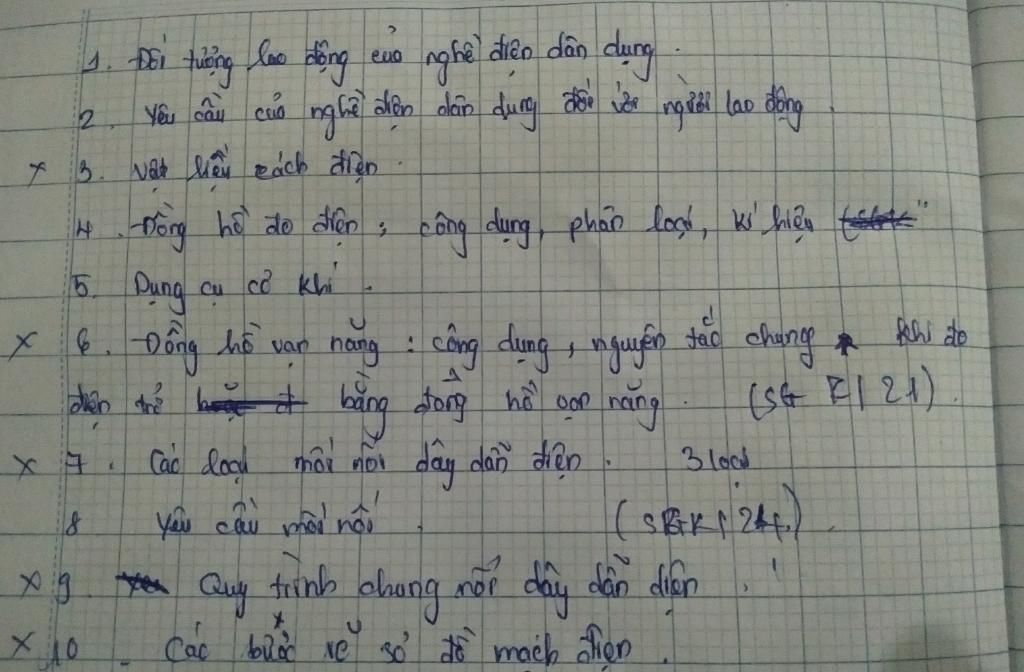 1. Đối tượng lao động của nghề điện dân dụng.
2. Yêu cầu của nghề điện dân dụng đối với người lao động.
x 3. Vật liệu cách điện.
4. Đồng hồ đo điện; công dụng, phân loại, kí hiệu
5. Dụng cụ cơ khí.
x 6. Đồng hồ vạn năng: công dụng, nguyên tắc chung khi đo
điện trở bằng đồng hồ vạn năng. (SGK/21).
x 7. Các loại mối nối dây dẫn điện. 3 loại
8 Yêu cầu mối nối. (SGK/24).
x 9 Quy trình chung nối dây dẫn điện.
x 10. Các bước vẽ sơ đồ mạch điện.